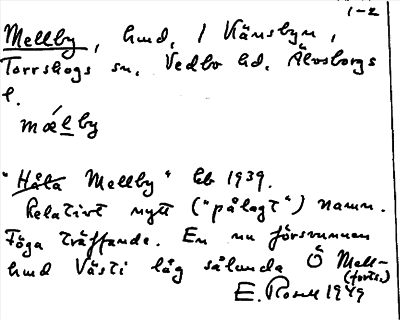 1-2
Mellby, hmd, i Vänsbyn,
Torrskogs sn, Vedbo hd. Älvsborgs
l.
mǽlby
"Håla Mellby" Eb 1939.
Relativt nytt ("pålagt") namn.
Föga träffande. En nu försvunnen
hmd Västi låg sålunda Ö Mell-
(forts.)
E. Rosell 1949